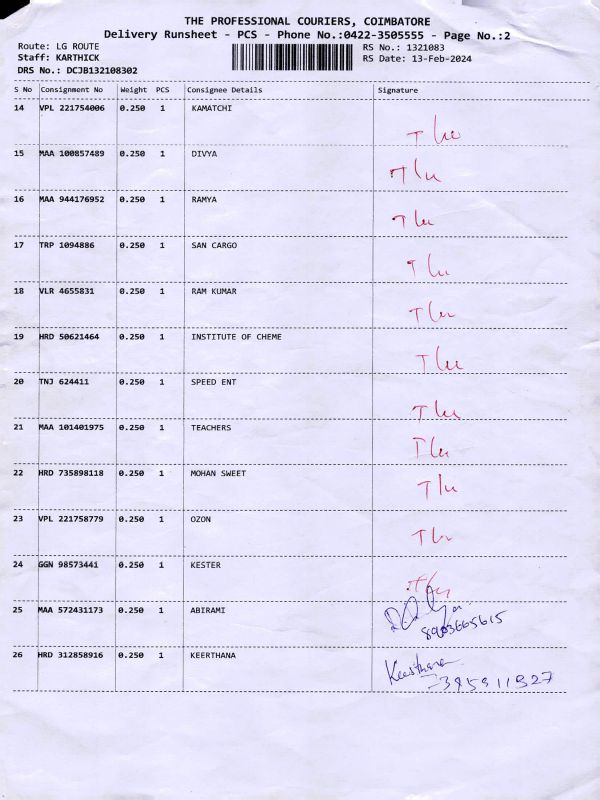 THE PROFESSIONAL COURIERS, COIMBATORE
Delivery Runsheet - PCS - Phone No.:0422-3505555 - Page No.:2
Route: LG ROUTE RS No.: 1321083
Staff: KARTHICK RS Date: 13-Feb-2024
DRS No.: DCJB132108302
S No Consignment No Weight PCS Consignee Details Signature
14 VPL 221754006 0.250 1 KAMATCHI
15 MAA 100857489 0.250 1 DIVYA
16 MAA 944176952 0.250 1 RAMYA
17 TRP 1094886 0.250 1 SAN CARGO
18 VLR 4655831 0.250 1 RAM KUMAR
19 HRD 50621464 0.250 1 INSTITUTE OF CHEME
20 TNJ 624411 0.250 1 SPEED ENT
21 MAA 101401975 0.250 1 TEACHERS
22 HRD 735898118 0.250 1 MOHAN SWEET
23 VPL 221758779 0.250 1 OZON
24 GGN 98573441 0.250 1 KESTER
25 MAA 572431173 0.250 1 ABIRAMI
26 HRD 312858916 0.250 1 KEERTHANA
Keerthana